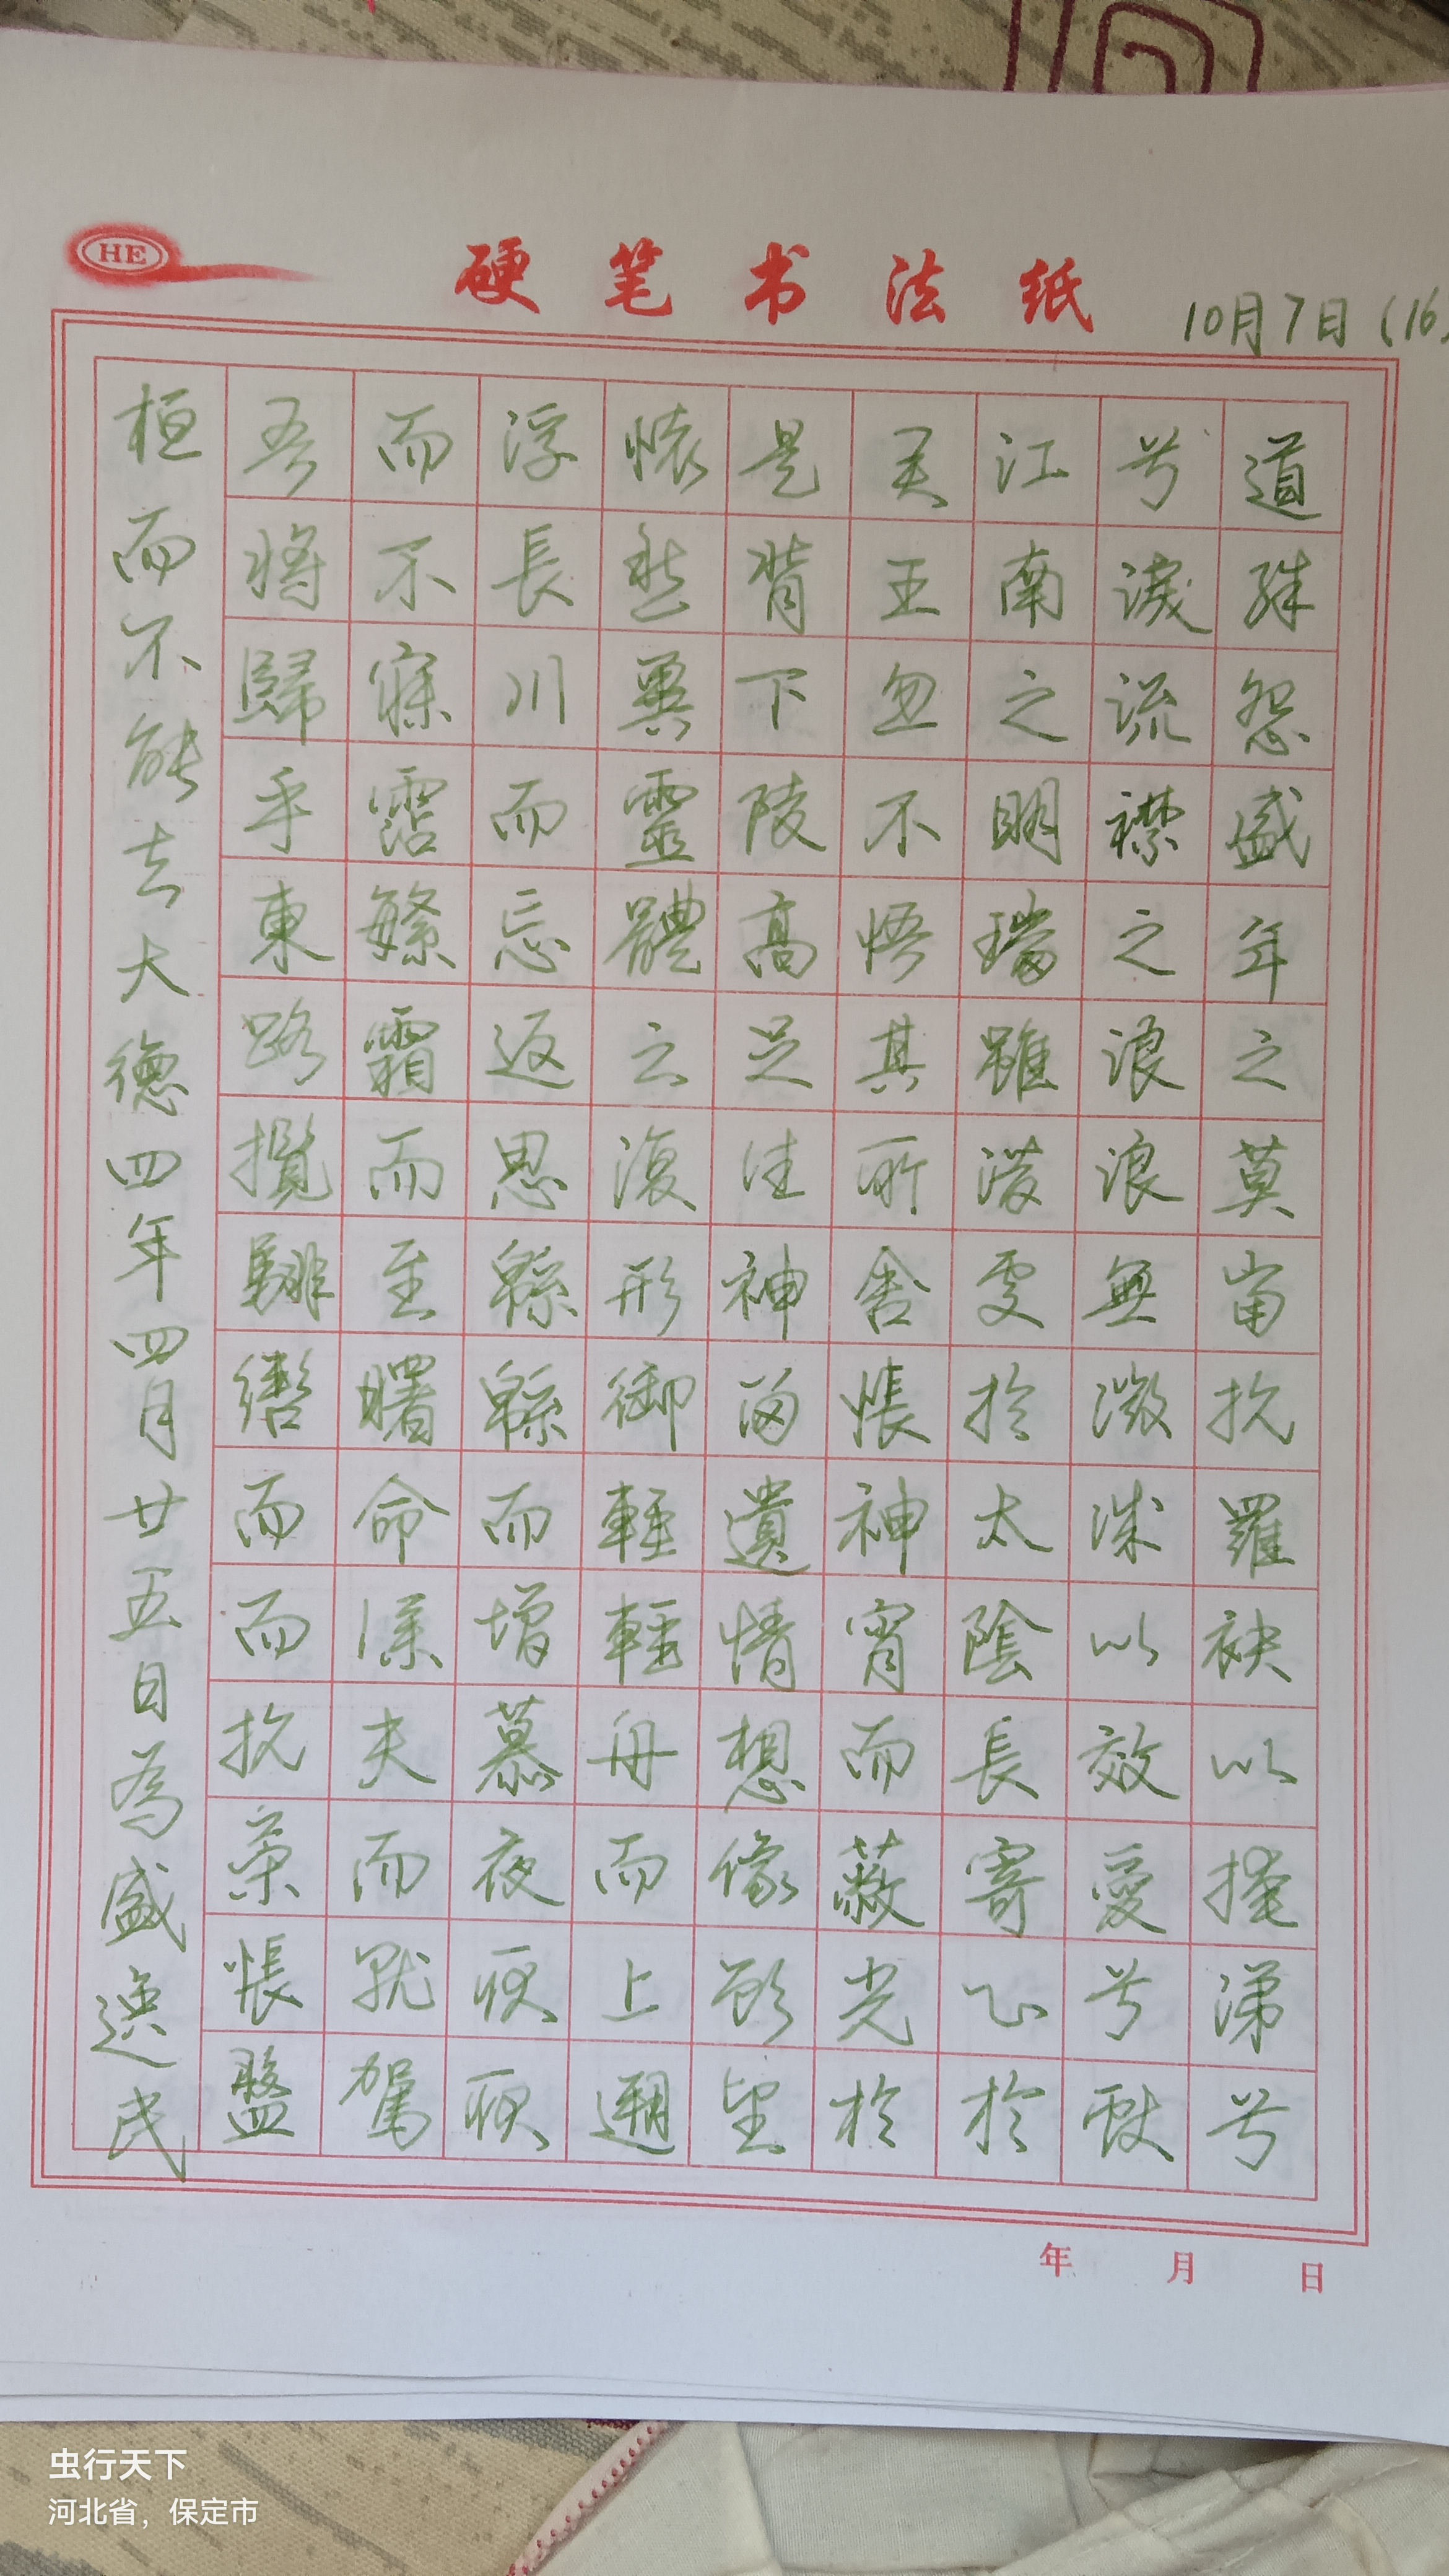 HE
硬笔书法纸
10月7日（16
道殊怨盛年之莫當抗羅袂以掩涕兮
兮淚流襟之浪浪無微誠以效愛兮獻
江南之明璫雖潛處於太陰長寄心於
君王忽不悟其所舍悵神宵而蔽光於
是背下陵高足往神留遺情想像顧望
懷愁冀靈體之復形御輕輕舟而上遡
浮長川而忘返思綿綿而增慕夜耿耿
而不寐霑繁霜而至曙命僕夫而就駕
吾將歸乎東路攬騑轡而而抗策悵盤
桓而不能去大德四年四月廿五日為盛逸民
年 月 日
虫行天下
河北省，保定市